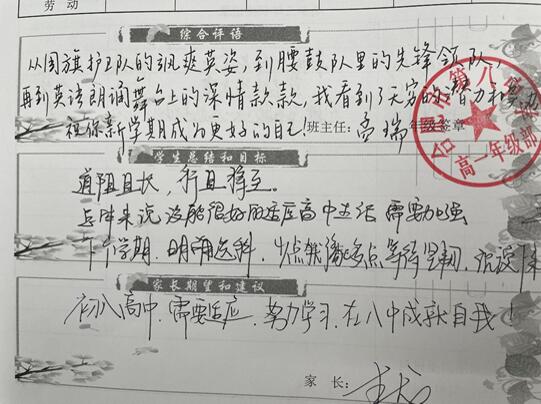 劳 动
综合评语
从国旗护卫队的飒爽英姿,到腰鼓队里的先锋领队,
再到英语朗诵舞台上的深情款款,我看到了无穷的潜力和
祝你新学期成为更好的自己!班主任: 瑞 年级签章
第八
高一年级部
学生总结和目标
道阻且长,行且将至。
总体来说没能很好的适应高中生活 需要加强
下个学期,明确选科,
家长期望和建议
初入高中,需要适应,努力学习,在八中成就自我!
家 长: